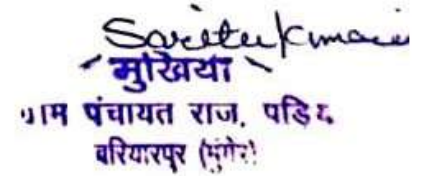 Sarita Kumari
मुखिया
ग्राम पंचायत राज, पड़िया
बरियारपुर (मुंगेर)